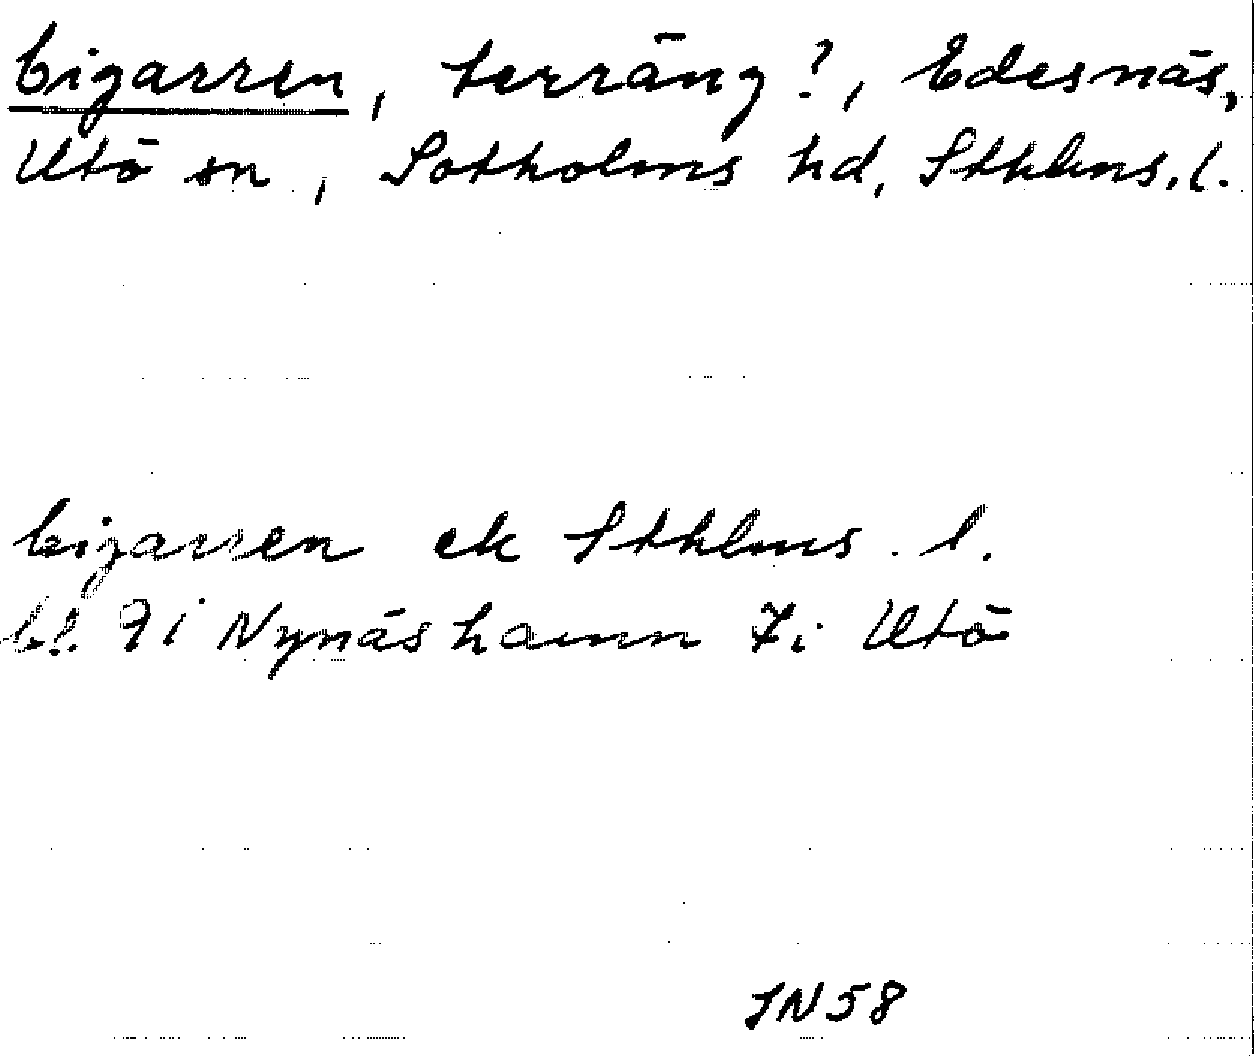 Cigarren, terräng?, Edesnäs,
Utö sn, Sotholms hd, Sthlms. l.
Cigarren ek Sthlms. l.
bl. 9i Nynäshamn 7i Utö
JN58